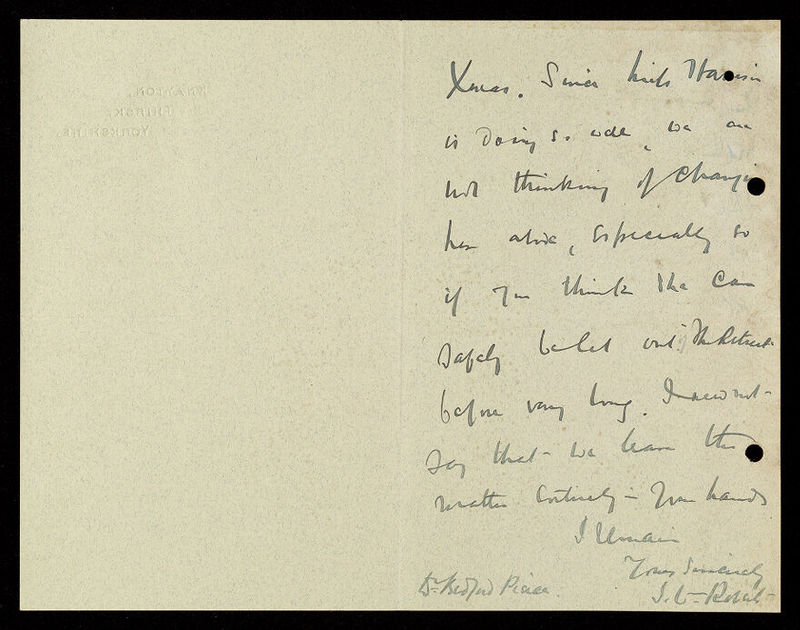 KNAYTON,
THIRSK,
YORKSHIRE.
Xmas. Since Miss Harrison
is doing so well, we are
not thinking of changing
her abode, especially so
if you think she can
safely be let out The Retreat
before very long. I need not
say that we leave the
matter entirely in your hands
I remain
Yours Sincerely
Dr Bedford Pierce.